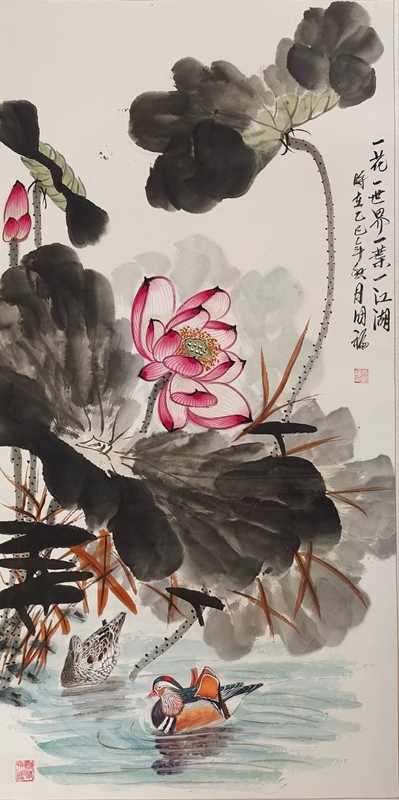 一花一世界一葉一江湖
時在乙巳年秋月明福